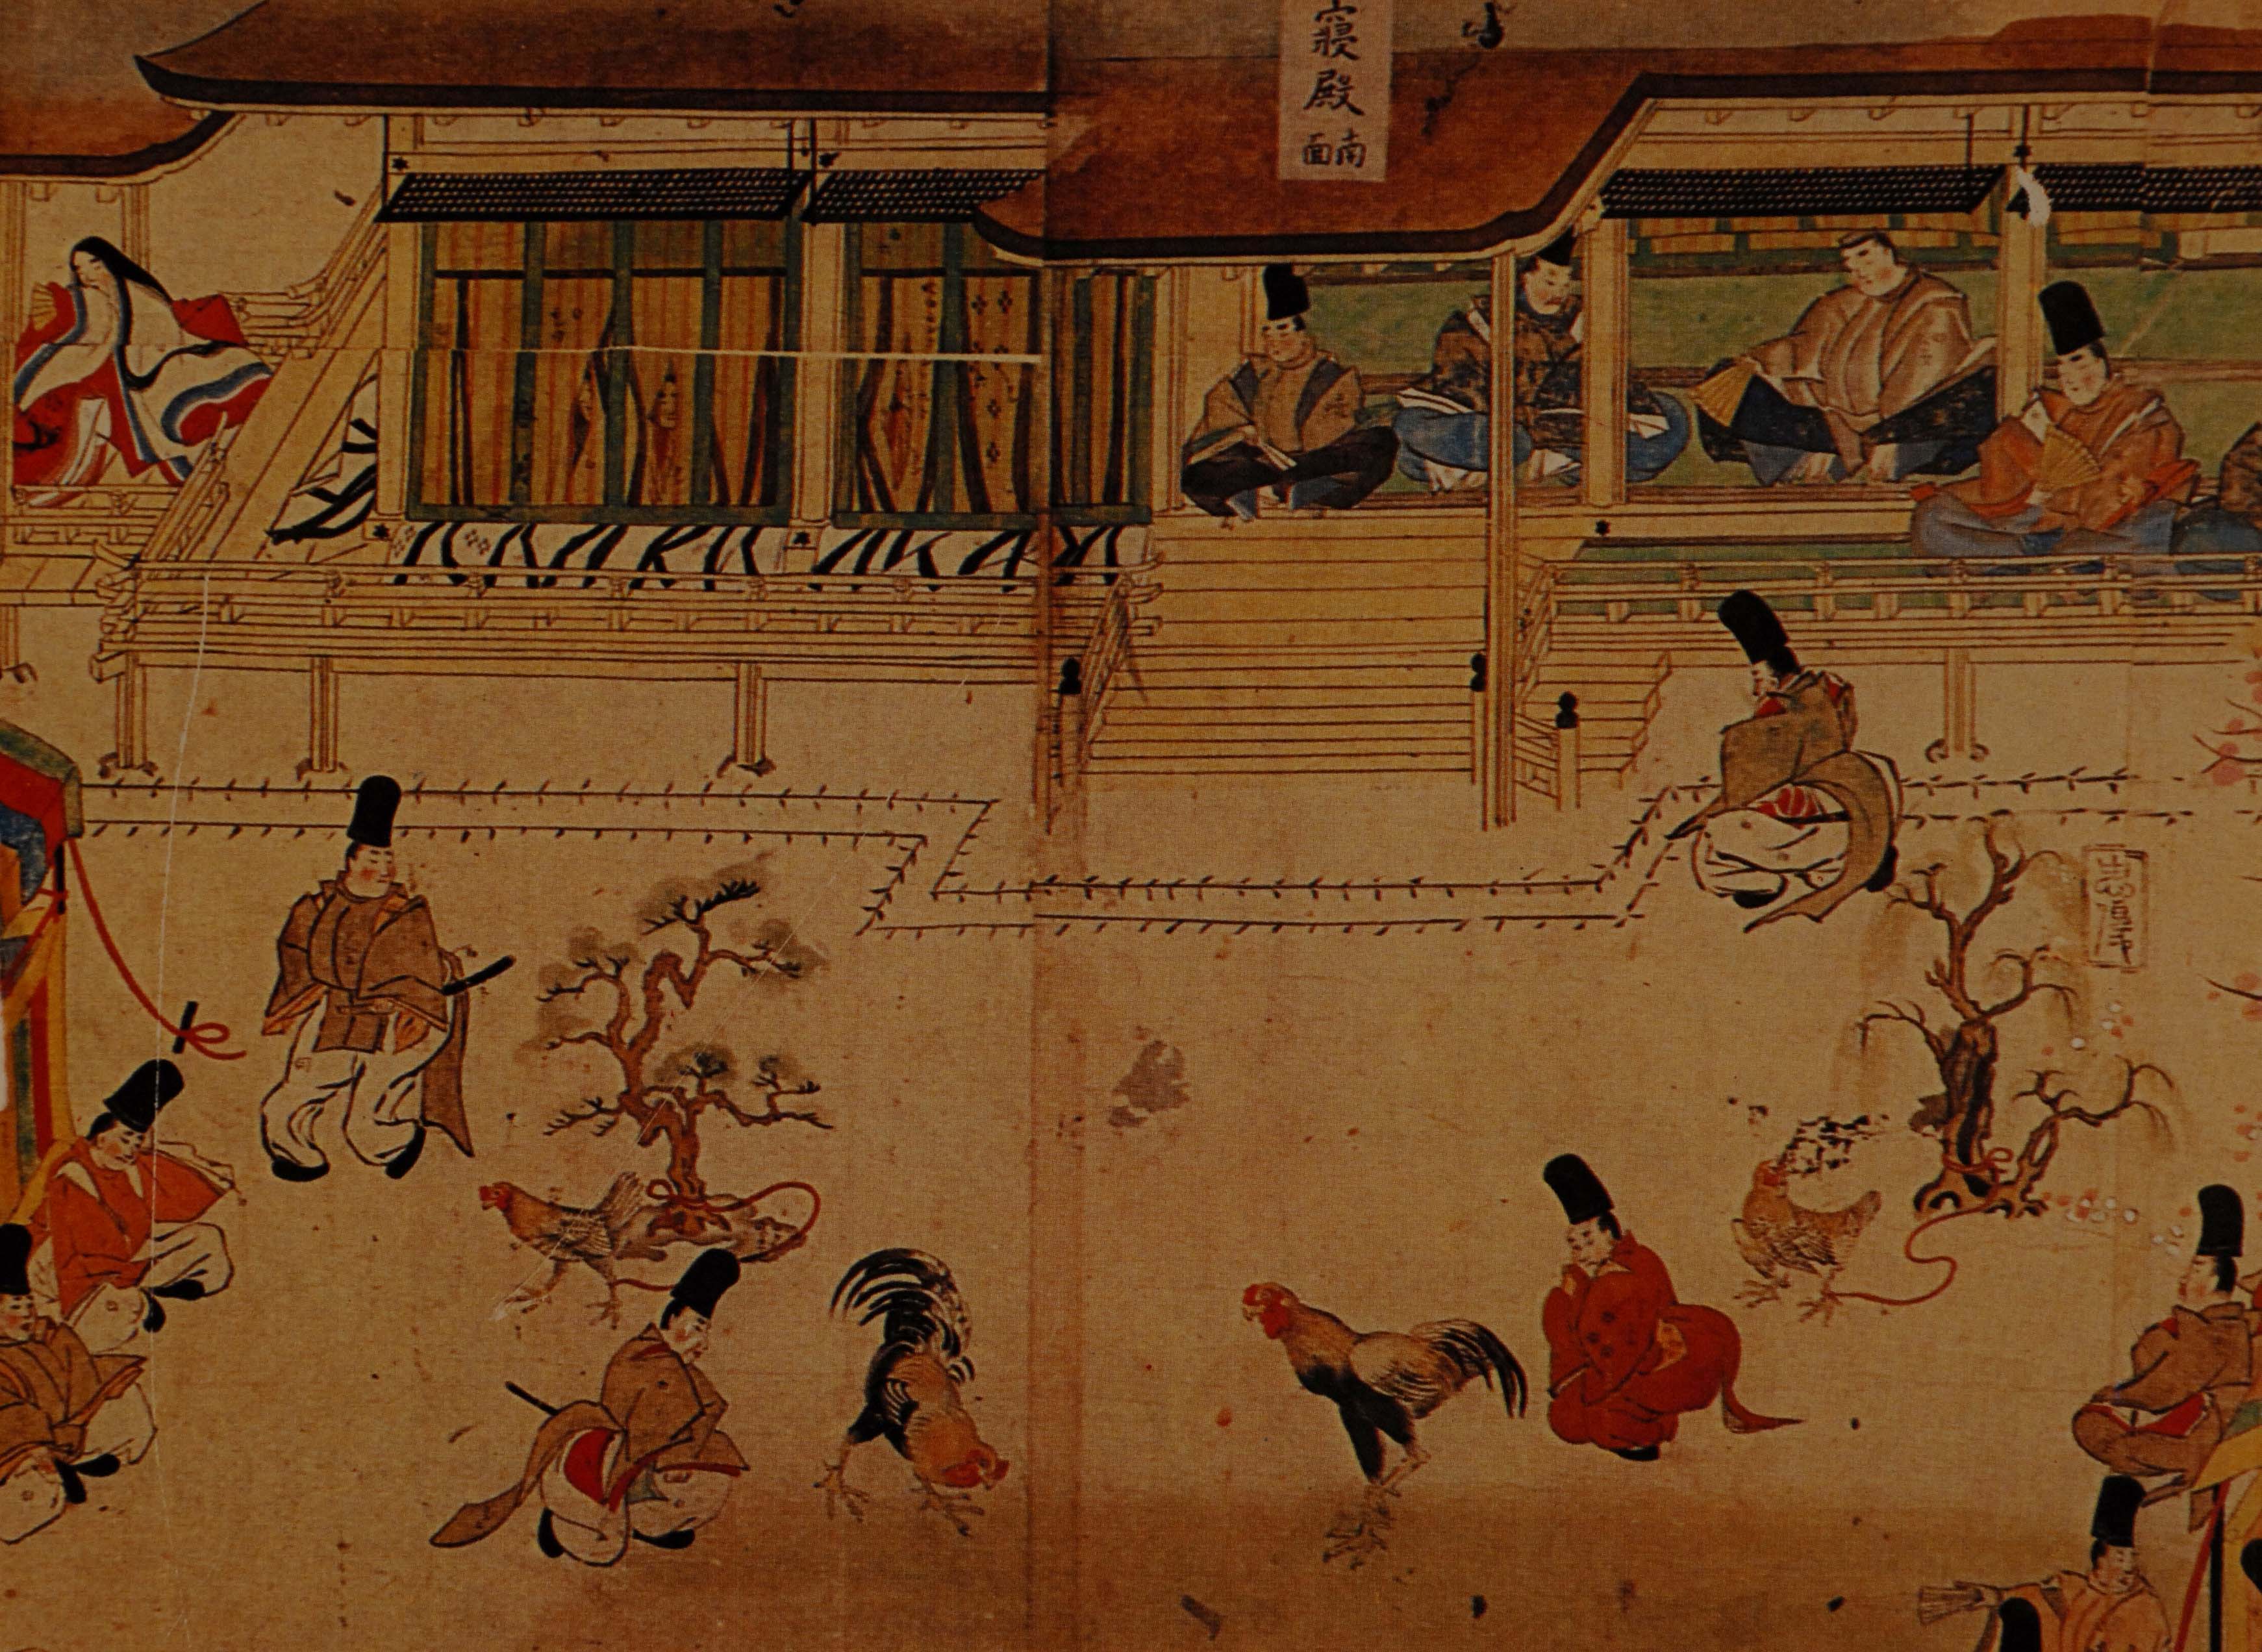 寝殿
南面